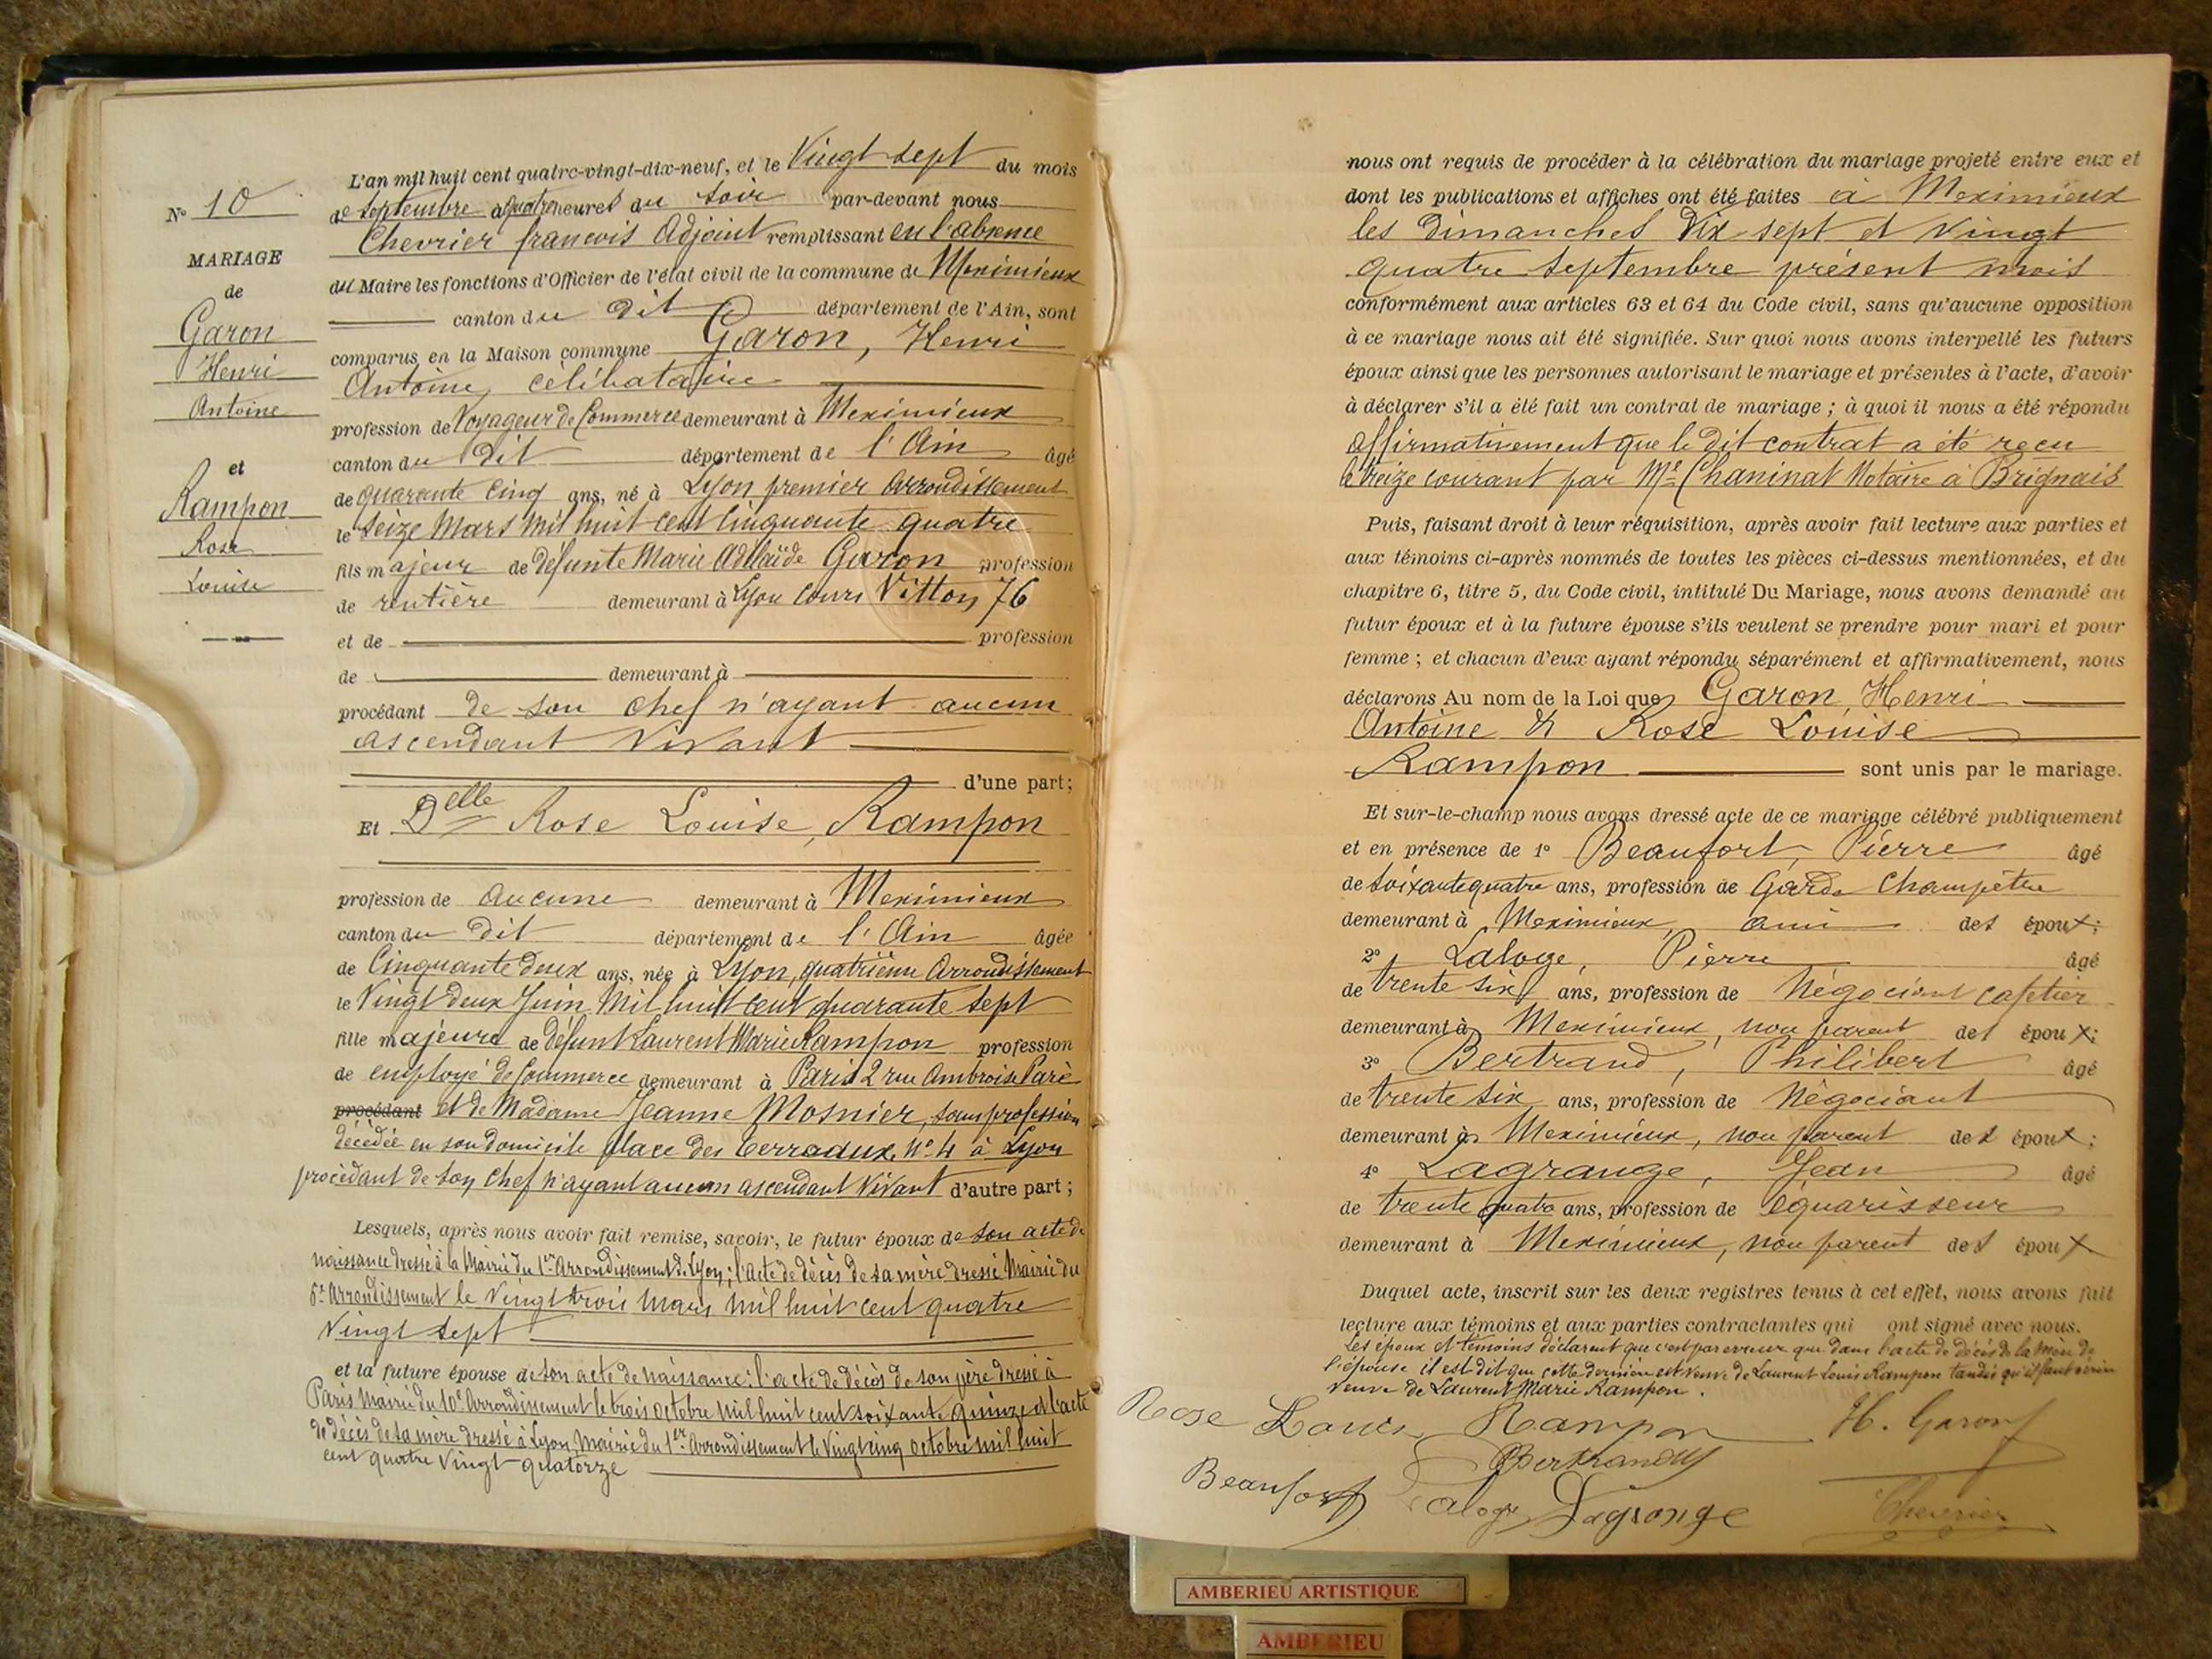 N° 10
MARIAGE
de
Garon
Henri
Antoine
et
Rampon
Rose
Louise
L'an mil huit cent quatre-vingt-dix-neuf, et le Vingt sept du mois
de Septembre à quatre heures du soir par-devant nous
Chevrier françois Adjoint remplissant en l'absence
du Maire les fonctions d'Officier de l'état civil de la commune de Meximieux
canton du dit département de l'Ain, sont
comparus en la Maison commune Garon, Henri
Antoine, célibataire
profession de Voyageur de Commerce demeurant à Meximieux
canton du dit département de l'Ain âgé
de quarante cinq ans, né à Lyon premier Arrondissement
le seize Mars mil huit cent cinquante quatre
fils majeur de défunte Marie Adélaïde Garon profession
de rentière demeurant à Lyon cours Vitton 76
et de profession
de demeurant à
procédant de son chef n'ayant aucun
ascendant vivant
d'une part;
Et Delle Rose Louise, Rampon
profession de aucune demeurant à Meximieux
canton du dit département de l'Ain âgée
de Cinquante deux ans, née à Lyon, quatrième Arrondissement
le Vingt deux Juin Mil huit cent quarante sept
fille majeure de défunt Laurent Marie Rampon profession
de employé de commerce demeurant à Paris 2 rue Ambroise Paré
procédant et de Madame Jeanne Mosnier, sans profession
décédée en son domicile place des Terreaux, N° 4 à Lyon
procédant de son chef n'ayant aucun ascendant vivant d'autre part;
Lesquels, après nous avoir fait remise, savoir, le futur époux de son acte de
naissance dressé à la Mairie du 1er Arrondissement de Lyon; l'acte de décès de sa mère dressé Mairie du
6e Arrondissement le Vingt trois mars mil huit cent quatre
Vingt sept
et la future épouse de son acte de naissance: l'acte de décès de son père dressé à
Paris Mairie du 10e Arrondissement le trois octobre mil huit cent soixante quinze et l'acte
de décès de sa mère dressé à Lyon, Mairie du 1er Arrondissement le Vingt cinq octobre mil huit
cent quatre Vingt quatorze
nous ont requis de procéder à la célébration du mariage projeté entre eux et
dont les publications et affiches ont été faites à Meximieux
les dimanches Dix sept et Vingt
quatre septembre présent mois
conformément aux articles 63 et 64 du Code civil, sans qu'aucune opposition
à ce mariage nous ait été signifiée. Sur quoi nous avons interpellé les futurs
époux ainsi que les personnes autorisant le mariage et présentes à l'acte, d'avoir
à déclarer s'il a été fait un contrat de mariage; à quoi il nous a été répondu
affirmativement que le dit contrat a été reçu
le treize courant par Me Chaninat Notaire à Brignais
Puis, faisant droit à leur réquisition, après avoir fait lecture aux parties et
aux témoins ci-après nommés de toutes les pièces ci-dessus mentionnées, et du
chapitre 6, titre 5, du Code civil, intitulé Du Mariage, nous avons demandé au
futur époux et à la future épouse s'ils veulent se prendre pour mari et pour
femme; et chacun d'eux ayant répondu séparément et affirmativement, nous
déclarons Au nom de la Loi que Garon, Henri
Antoine & Rose Louise
Rampon sont unis par le mariage.
Et sur-le-champ nous avons dressé acte de ce mariage célébré publiquement
et en présence de 1° Beaufort, Pierre âgé
de soixante quatre ans, profession de Garde Champêtre
demeurant à Meximieux, ami des époux;
2° Laloge, Pierre âgé
de trente six ans, profession de Négociant cafetier
demeurant à Meximieux, non parent des époux;
3° Bertrand, Philibert âgé
de trente six ans, profession de Négociant
demeurant à Meximieux, non parent des époux;
4° Lagrange, Jean âgé
de trente quatre ans, profession de équarisseur
demeurant à Meximieux, non parent des époux
Duquel acte, inscrit sur les deux registres tenus à cet effet, nous avons fait
lecture aux témoins et aux parties contractantes qui ont signé avec nous.
Les époux et témoins déclarent que c'est par erreur que dans l'acte de décès de la mère de
l'épouse il est dit que cette dernière est veuve de Laurent Louis Rampon tandis qu'il faut
veuve de Laurent Marie Rampon.
Rose Louise Rampon H. Garon
Bertrand
Beaufort Laloge Lagrange Chevrier
AMBERIEU ARTISTIQUE
AMBERIEU